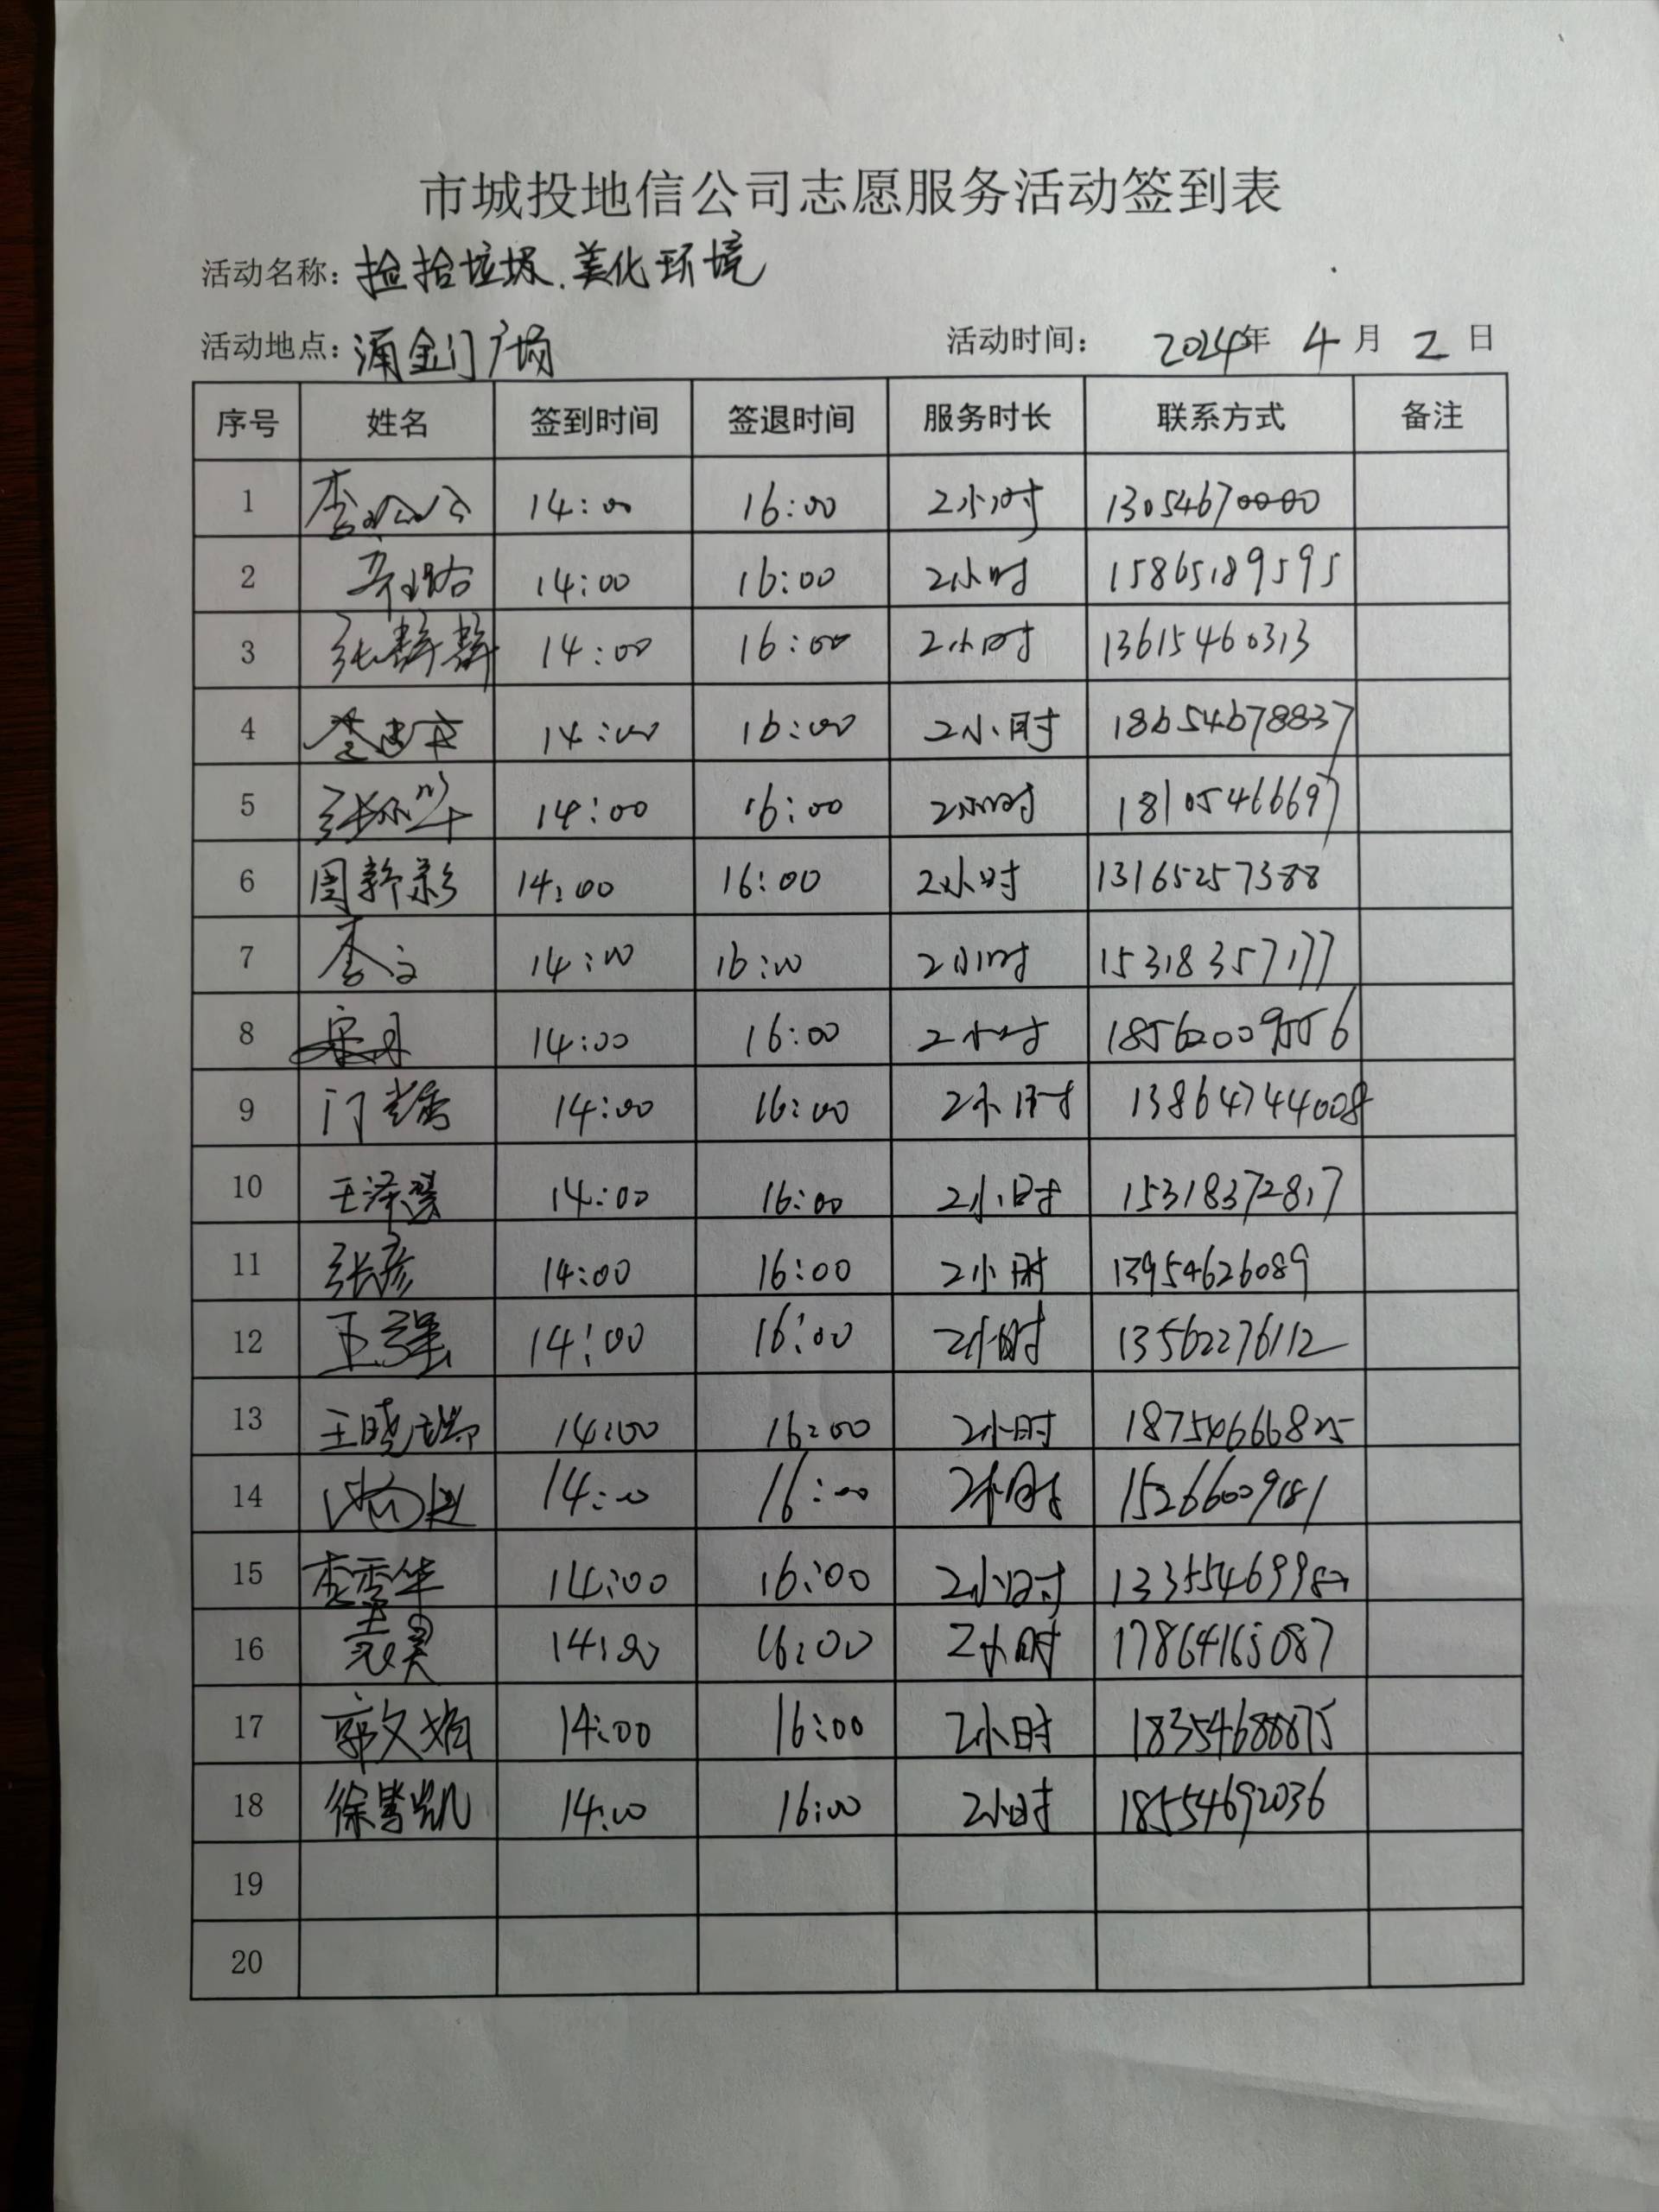 市城投地信公司志愿服务活动签到表
活动名称：捡拾垃圾.美化环境
活动地点：涌金门广场 活动时间： 2024年 4 月 2 日
序号 姓名 签到时间 签退时间 服务时长 联系方式 备注
1 14:00 16:00 2小时 13054670000
2 14:00 16:00 2小时 15865189595
3 张群群 14:00 16:00 2小时 13615460313
4 14:00 16:00 2小时 18654678837
5 14:00 16:00 2小时 18105466697
6 14:00 16:00 2小时 13165257388
7 14:00 16:00 2小时 15318357177
8 宋丹 14:00 16:00 2小时 18562009556
9 14:00 16:00 2小时 13864744008
10 14:00 16:00 2小时 15318372817
11 张彦 14:00 16:00 2小时 13954626089
12 王强 14:00 16:00 2小时 13562276112
13 王晓瑞 14:00 16:00 2小时 18754666825
14 14:00 16:00 2小时 15266009181
15 李秀华 14:00 16:00 2小时
16 袁昊 14:00 16:00 2小时 17864165087
17 郭文娟 14:00 16:00 2小时
18 14:00 16:00 2小时 18554692036
19
20